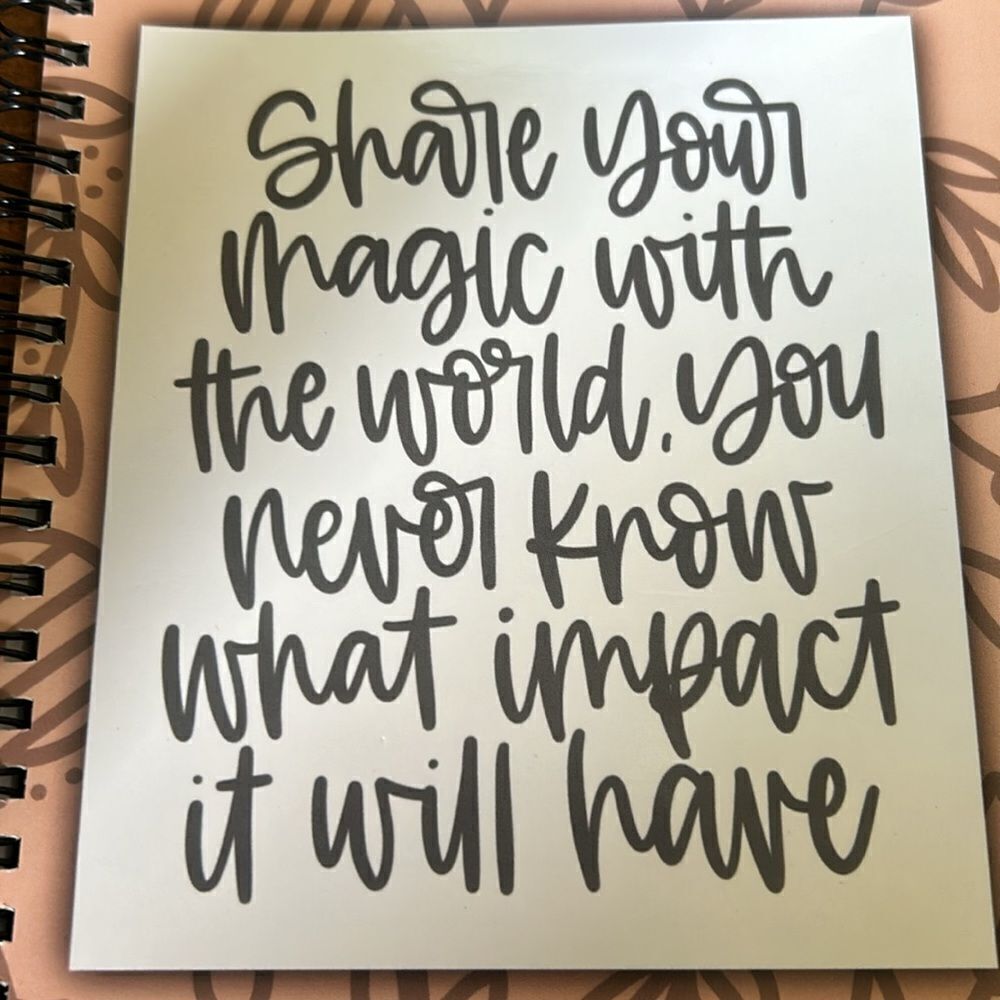 Share your
magic with
the world. You
never know
what impact
it will have